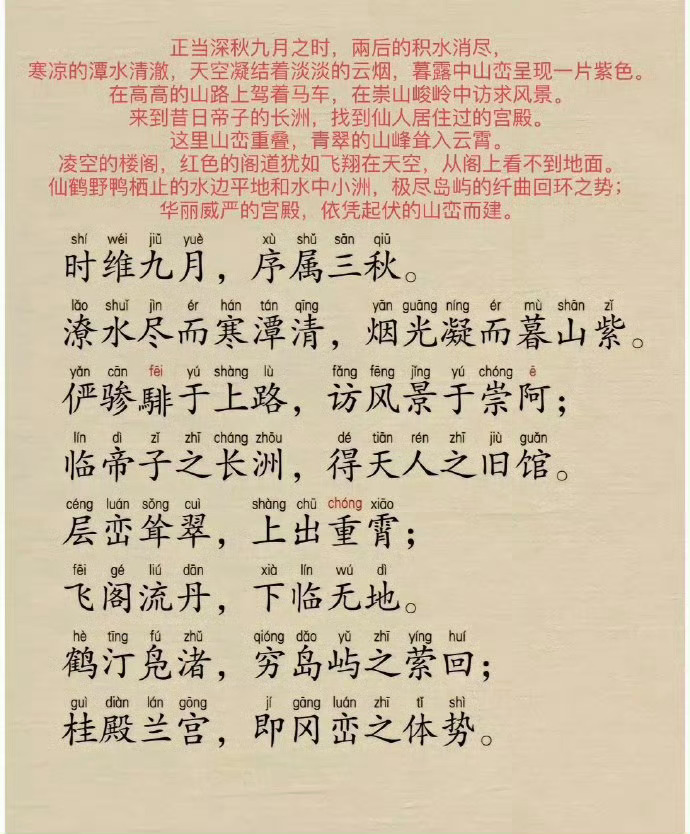 正当深秋九月之时，雨后的积水消尽，
寒凉的潭水清澈，天空凝结着淡淡的云烟，暮霭中山峦呈现一片紫色。
在高高的山路上驾着马车，在崇山峻岭中访求风景。
来到昔日帝子的长洲，找到仙人居住过的宫殿。
这里山峦重叠，青翠的山峰耸入云霄。
凌空的楼阁，红色的阁道犹如飞翔在天空，从阁上看不到地面。
仙鹤野鸭栖止的水边平地和水中小洲，极尽岛屿的纤曲回环之势；
华丽威严的宫殿，依凭起伏的山峦而建。
shí wéi jiǔ yuè xù shǔ sān qiū
时维九月，序属三秋。
lǎo shuǐ jìn ér hán tán qīng yān guāng níng ér mù shān zǐ
潦水尽而寒潭清，烟光凝而暮山紫。
yǎn cān fēi yú shàng lù fǎng fēng jǐng yú chóng ē
俨骖騑于上路，访风景于崇阿；
lín dì zǐ zhī cháng zhōu dé tiān rén zhī jiù guǎn
临帝子之长洲，得天人之旧馆。
céng luán sǒng cuì shàng chū chóng xiāo
层峦耸翠，上出重霄；
fēi gé liú dān xià lín wú dì
飞阁流丹，下临无地。
hè tīng fú zhǔ qióng dǎo yǔ zhī yíng huí
鹤汀凫渚，穷岛屿之萦回；
guì diàn lán gōng jí gāng luán zhī tǐ shì
桂殿兰宫，即冈峦之体势。